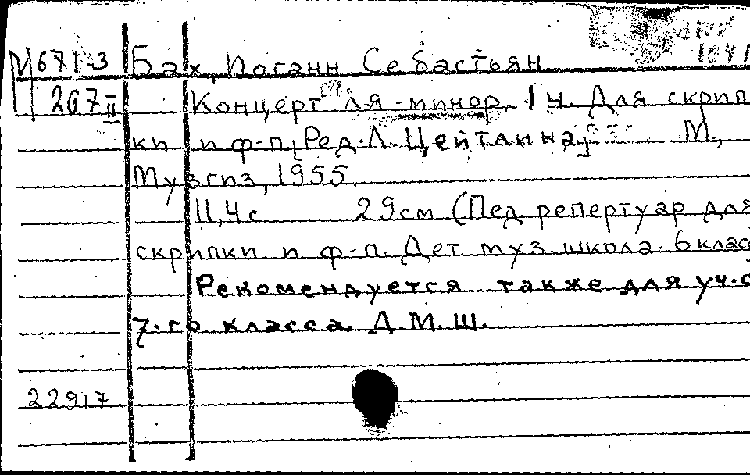 М671-3 Бах, Иоганн Себастьян
267 II Концерт ля-минор. 1 ч. Для скрип
ки и ф-п. Ред. Л. Цейтлина М.,
Музгиз, 1955
11,4 с 29 см (Пед репертуар для
скрипки и ф-п. Дет муз школа. 6 клас
Рекомендуется также для уч-с
7-го класса Д.М.Ш.
22917